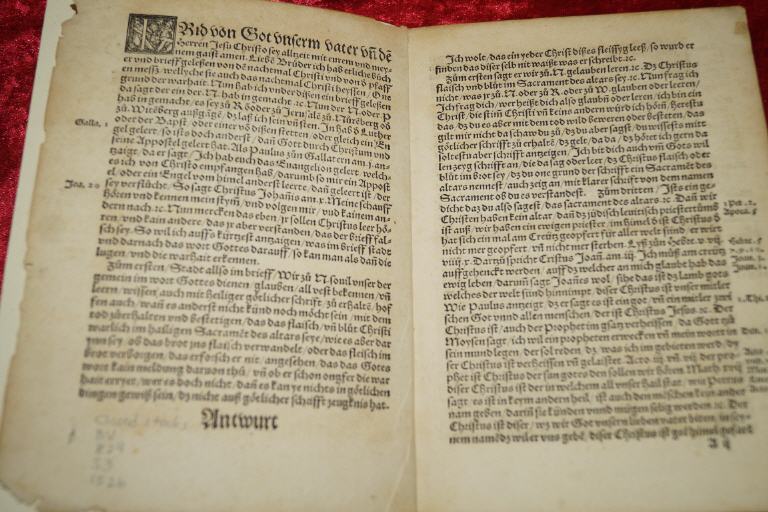 FRid von Got vnserm vater vñ dē
Herren Jesu Christo sey allzeit mit eüwrem vnd meynem
gaist amen. Liebē Brüder ich hab etliche büch
er vnd brieff gelesen von dē nachemal Christi vnd von d' pfaff
en mess, wellyche sie auch das nachemal Christi heyssen, One
grund der warhait. Nun hab ich vnder disen ein brieff gelesen
da sagt der ein der N. hab in gemacht ⁊c. Nun der N. oder P
hab in gemacht
oder der Bapst, oder einer võ disen stetten, oder gleich ein En
gel gelert, so ists doch anderst, dañ Gott durch Christum vnd
seine Appostel gelert hat. Als Paulus zün Gallatern am .j. an
zaigt, da er sagt, Ich hab euch das Euangelion gelert, welch
es ich von Christo empfangen hab, darumb so mir ein Appost
el, oder ein Engel vom himel anderst leerte, dañ gelert ist, der
sey verflücht. So sagt Christus Johañis am .x. Meine schauff
hören vnd kennen mein stym, vnd volgen mir, vnd kainem an
dern nach ⁊c. Nun mercken das eben, jr sollen Christus leer hö
ren, vnd kain andere, das jr aber verstanden, das der brieff fal
sch sey. So wil ich auffs kürtzest anzaigen, was im brieff stadt
vnd darnach das wort Gottes darauff, so kan man als dañ die
lugen, vnd die warhait erkennen.
Zům ersten, Stadt allso im brieff, Wir zü N. souil vnser der
gemein im wort Gottes dienen, glauben, all vest bekennen, vñ
leern, wissen auch mit heiliger götlicher schrifft, zů erhaltē, hof
fen auch, wañ es anderst nicht künd noch möcht sein, mit dem
tod zůerhalten vnd befestigen, das das flaisch, vñ blůt Christi
warlich im hailigen Sacramēt des altars seye, wie es aber dar
inn sey, ob das brot ins flaisch verwandelt, oder das fleisch im
brot verborgen, das erforsch er nit, angesehen, das das Gotes
wort kain meldung daruon thů, vñ ob er schon ongfer die war
hait erryet, wer es doch nicht, dañ es kan ye nichts in götlichen
dingen gewiß sein, dz nicht auß götlicher schrifft zeugknis hat.
Antwurt
Galla. 1
Joa. 10
1526
Ich wolt, das ein yeder Christ dißes fleissyg leeß, so wurd er
finden das diser selb nit waißt was er schreibt ⁊c.
Zům ersten sagt er wir zů N. gelauben leren ⁊c. Dz Christus
flaisch vnd blůt im Sacrament des altars sey ⁊c. Nun frag ich
nicht, was jr zů N. oder zů R. oder zů W. glauben oder leren,
Ich frag dich, wer heißt dich also glaubñ oder leren, ich bin ein
Christ, du ein Christ vñ kein andern
das, dz du es aber mit dem tod wild beweren oder bestetten, das
gilt mir nicht da schaw zů, dz du aber sagst, du wissests mitt
götlicher schrifft zů erhaltē, dz gelt, da da, dz höret ich gern da
soltestu aber schrifft anzeigen, Ich bit dich auch vñ Gots wil
len zeyg schrifft an, die da sag oder leer, dz Christus flaisch oder
blůt im brot sey, dz du one grund der schrifft ein Sacramēt des
altars nennest, auch zeig an, mit klarer schrifft von dem namen
Sacrament ob du es verstandest. Zům dritten, Ists ein ge
dicht daz du also sagest, das sacrament des altars ⁊c. Dañ wir
Christen haben kein altar, dañ dz jüdisch leuitisch priestertum̄
ist auß, wir haben ein ewigen priester, im himel ist Christus d'
hat sich ein mal am Creütz geopfert für aller welt sünd, er wirt
nicht mer geopfert, vñ nicht mer sterben.
viiij x. Darzů spricht Cristus Joañ am .iij. Ich můß am creütz
auffgehenckt werden, auff dz welcher an mich glaube hab das
ewig leben, darum̄ sagt Joañes wol, sihe das ist dz lamb gots
welches der welt sünd hinnimbt, diser Christus ist vnser mitler
Wie Paulus anzeigt, dz er sagt es ist ein got, vñ ein mitler zwi
schen Got vnnd allen menschen, der ist Christus Jesus ⁊c. Der
Christus ist, auch der Prophet im gsatz verheissen, da Gott zů
Moysen sagt, ich wil ein propheten erwecken vñ mein wort in
sein mund legen, der sol reden, dz, was ich im gebieten werd, dy
ser Christus ist verheissen vñ gelaist Acto. iij. vñ vij der pro
phet ist Christus der sun gotes den sollen wir hören Math xvij
diser Christus ist der in welchem all vnser hail stat, wie Petrus
sagt, es ist in keym andern heil, ist auch den mēschen kein ander
nam geben, darin̄ sie künden vnnd mügen selig werden ⁊c. Der
Christus ist diser, wz wir Got vnsern lieben vater biten in sey
nem namē dz wil er vns gebē, diser Christus ist
A ij
1. Pet. 2.
Apoca. 5.
Hebre. 5
Joan. 3.
Joan. 1.
1. Thi.